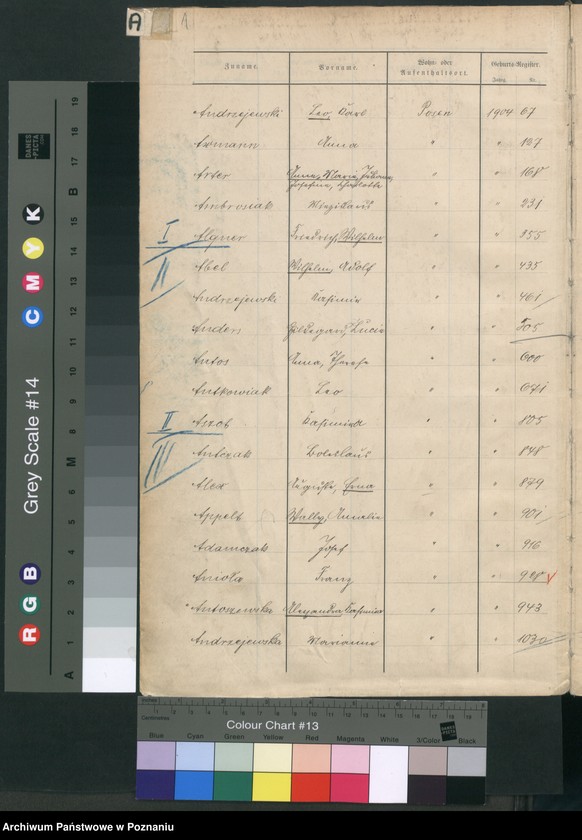 A A
Zuname. Vorname. Wohn- oder Aufenthaltsort. Geburts-Register.
Jahrg. Nr.
Andrzejewski Leo Karl Posen 1904 67
Ermann Anna " " 127
Arter Anna, Maria, Johanna, " " 168
Josefina, Charlotte
Ambrosiak " " 231
I
Algner Friedrich, Wilhelm " " 255
Abel Wilhelm, Adolf " " 435
II
Andrzejewski Kasimir " " 461
Anders Hildegard, Lucie " " 505
Antos Anna, Therese " " 600
Antkowiak Leo " " 671
II
Kasimira " " 805
Antczak Boleslaus " " 848
III
Alex Auguste, Erna " " 879
Appelt Wally, Amalie " " 901
Adamczak Josef " " 916
Aniola Franz " " 928
Antoszewska Alexandra, Kasimira " " 943
Andrzejewska Marianna " " 1030
DANES
PICTA
.COM
Grey Scale #14
R G B C M Y K
A 1 2 3 4 5 6 M 8 9 10 11 12 13 14 B 15 16 17 18 19
Inches
Centimetres
Colour Chart #13
Blue Cyan Green Yellow Red Magenta White 3/Color Black
Archiwum Państwowe w Poznaniu